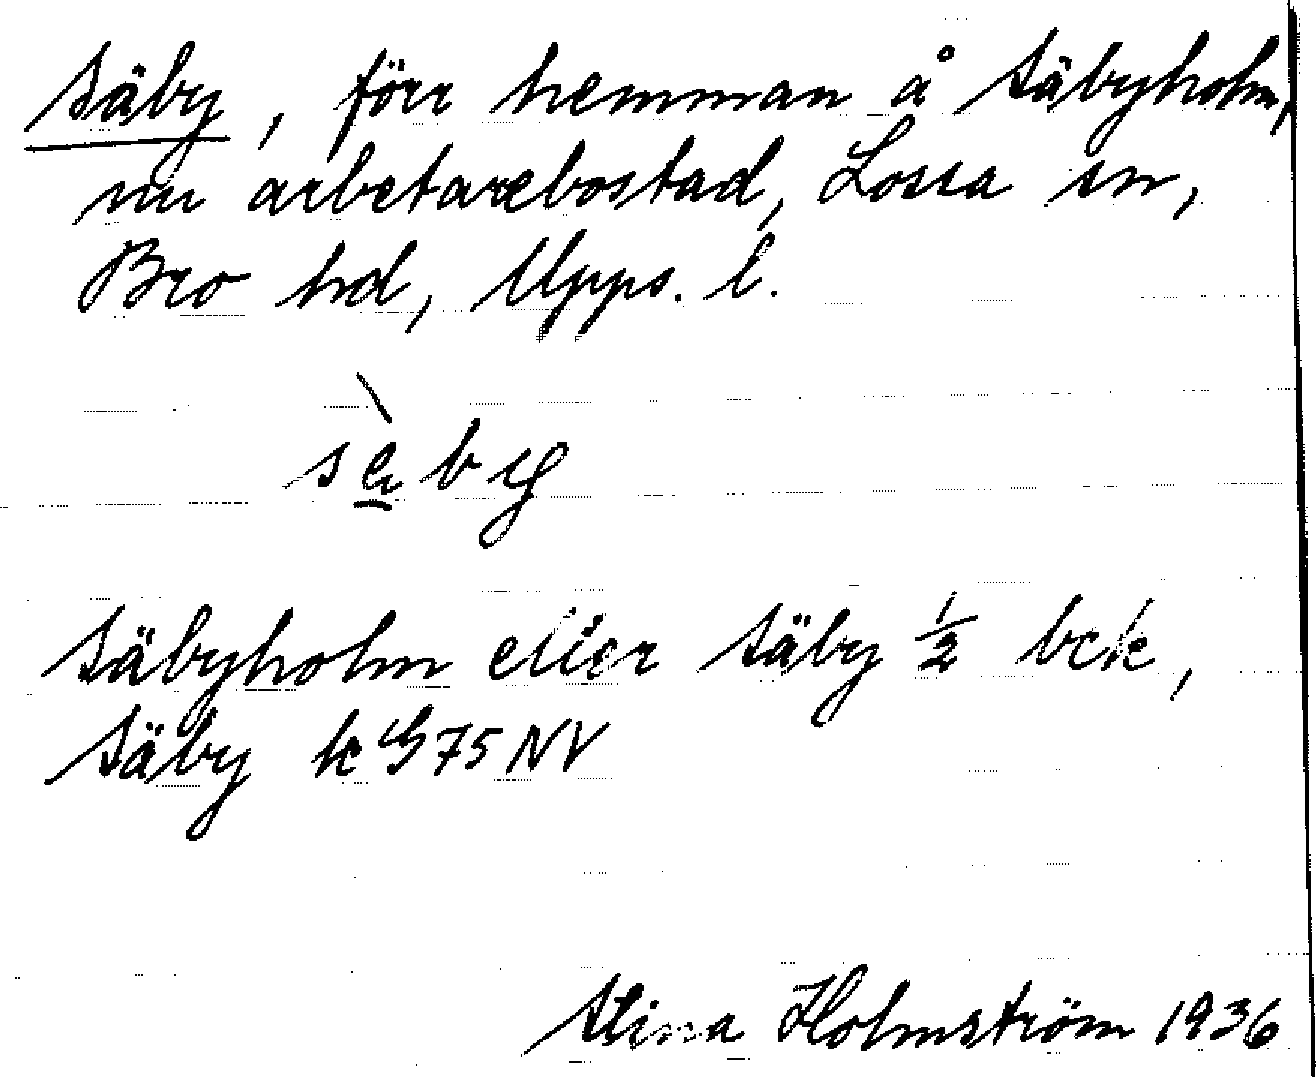 Säby, förr hemman å Säbyholm,
nu arbetarebostad, Lossa sn,
Bro hd, Upps. l.
Säbyholm eller Säby ½ bck,
Säby k G75NV
Stina Holmström 1936